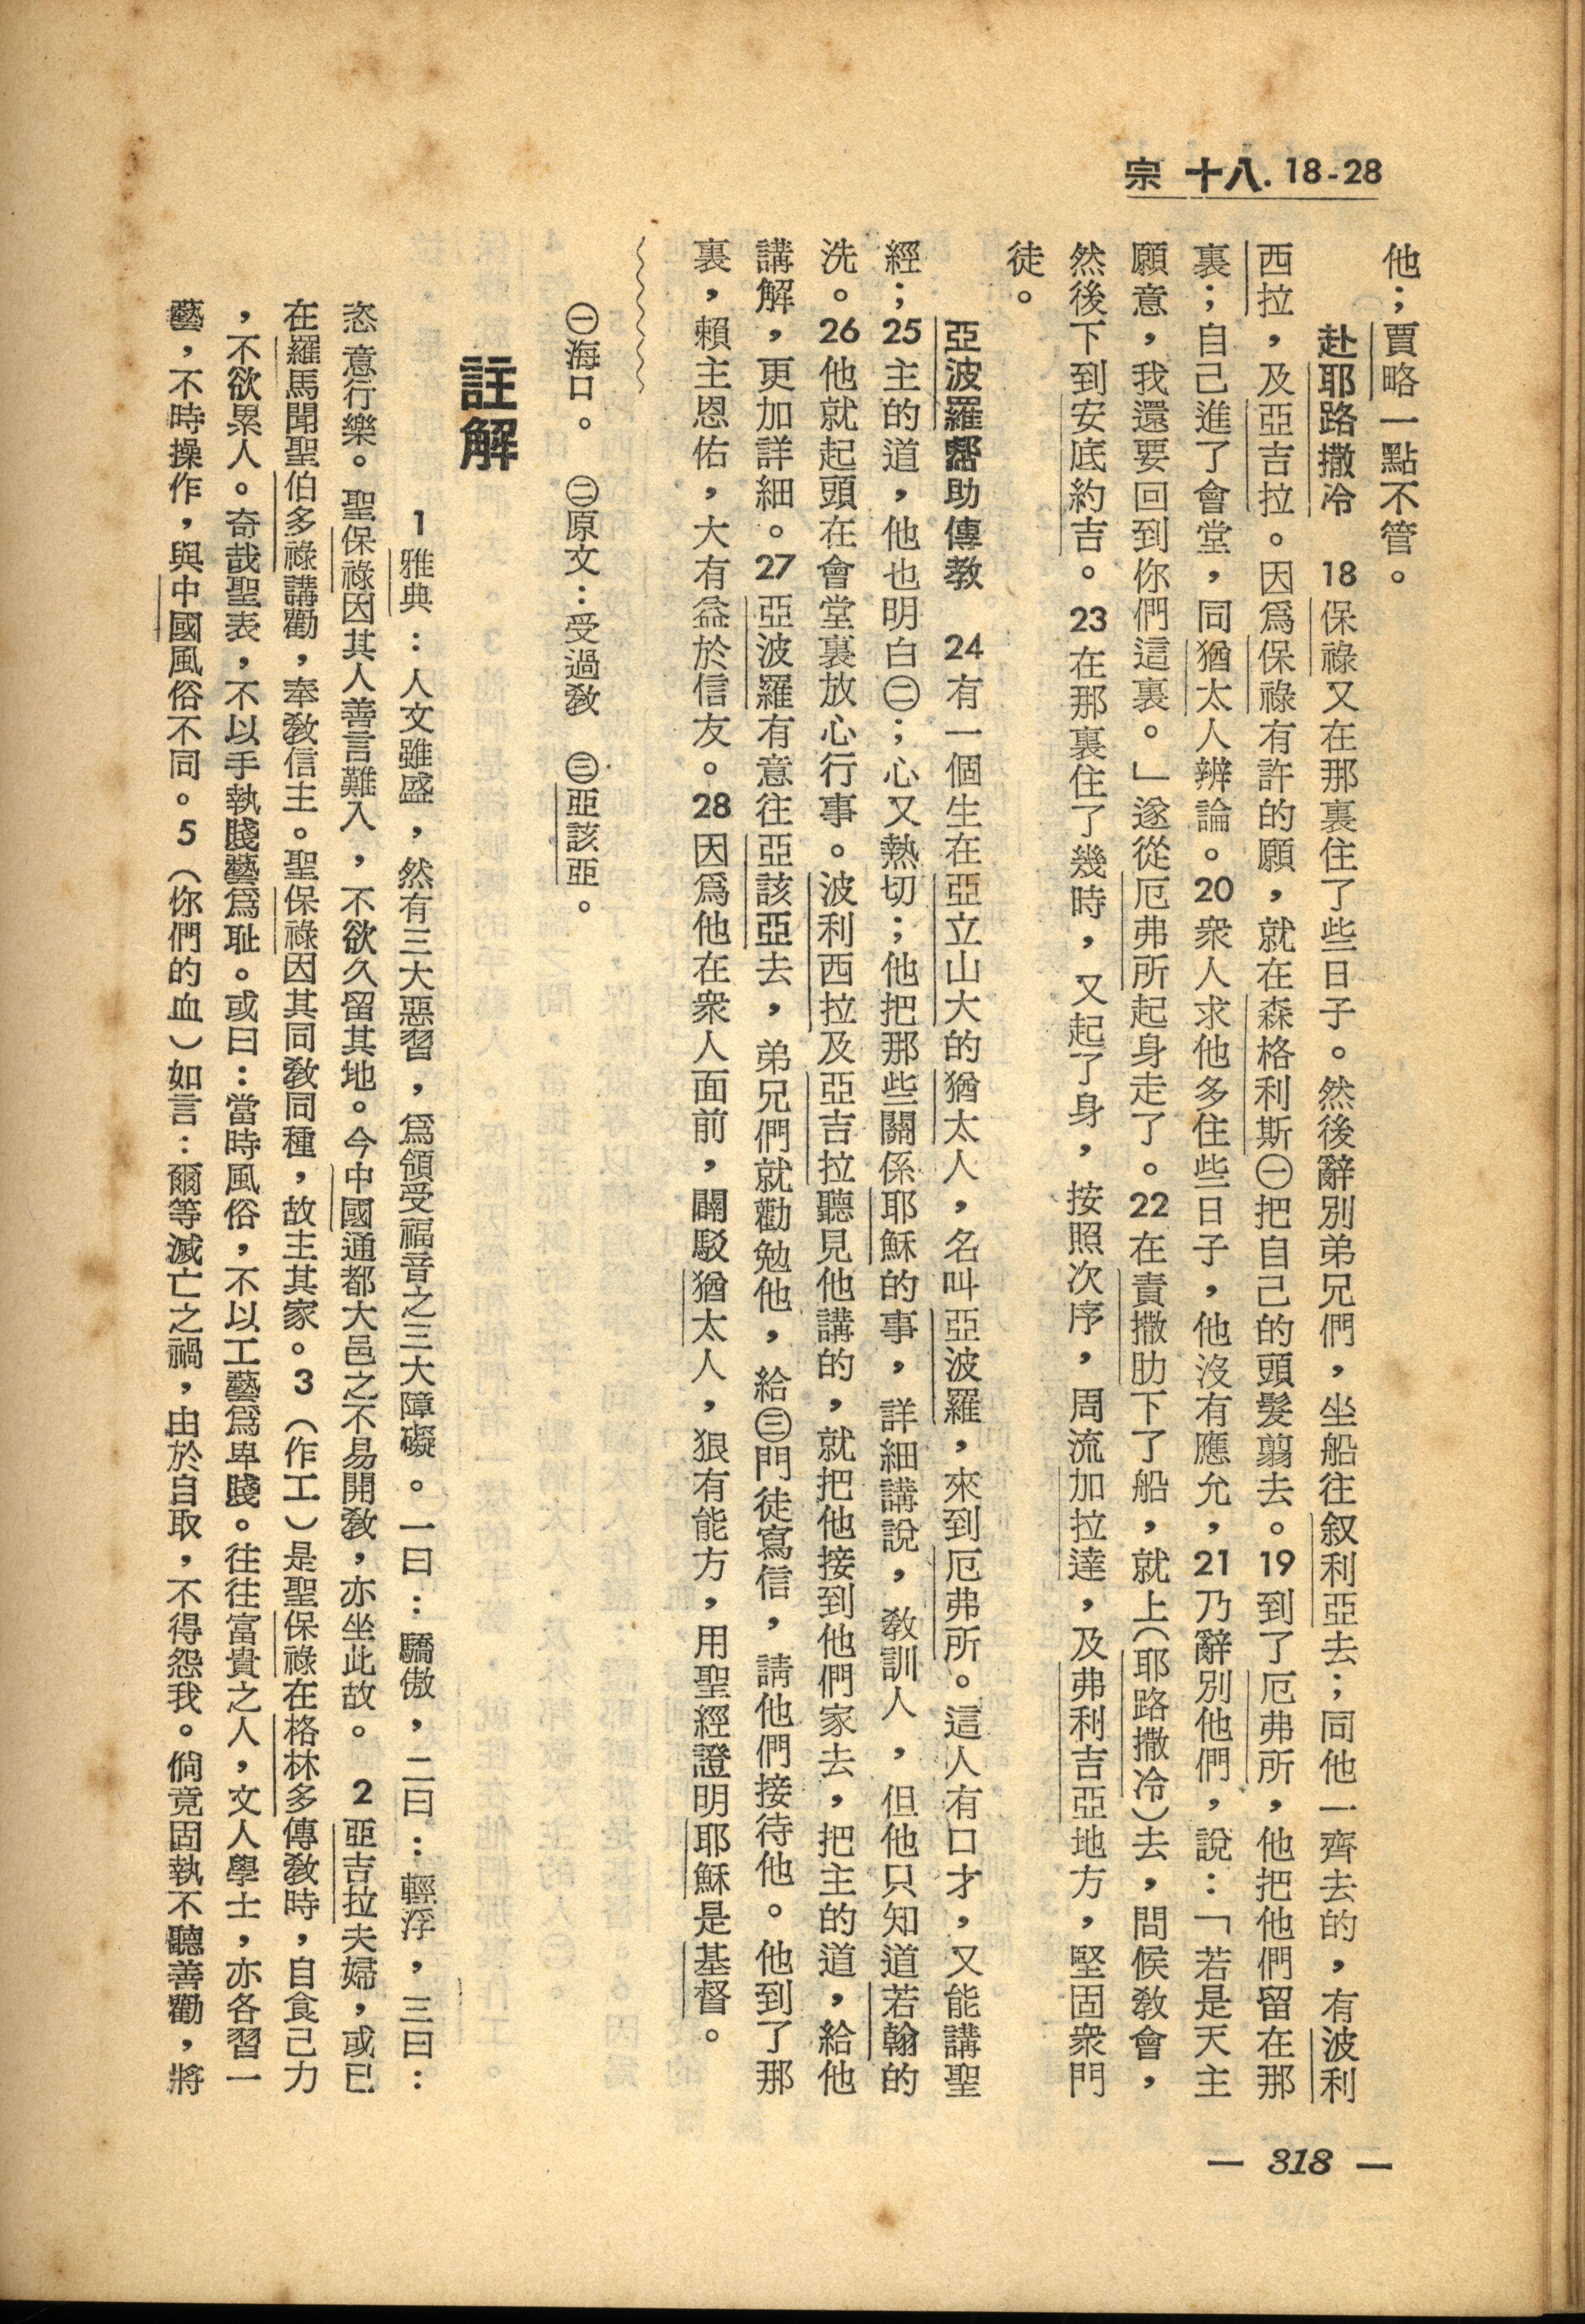 宗 十八. 18-28
他；賈略一點不管。
赴耶路撒冷　18保祿又在那裏住了些日子。然後辭別弟兄們，坐船往叙利亞去；同他一齊去的，有波利
西拉，及亞吉拉。因爲保祿有許的願，就在森格利斯㊀把自己的頭髮翦去。19到了厄弗所，他把他們留在那
裏；自己進了會堂，同猶太人辨論。20衆人求他多住些日子，他沒有應允，21乃辭別他們，說：「若是天主
願意，我還要回到你們這裏。」遂從厄弗所起身走了。22在責撒肋下了船，就上（耶路撒冷）去，問候教會，
然後下到安底約吉。23在那裏住了幾時，又起了身，按照次序，周流加拉達，及弗利吉亞地方，堅固衆門
徒。
亞波羅幫助傳教　24有一個生在亞立山大的猶太人，名叫亞波羅，來到厄弗所。這人有口才，又能講聖
經；25主的道，他也明白㊁；心又熱切；他把那些關係耶穌的事，詳細講說，教訓人，但他只知道若翰的
洗。26他就起頭在會堂裏放心行事。波利西拉及亞吉拉聽見他講的，就把他接到他們家去，把主的道，給他
講解，更加詳細。27亞波羅有意往亞該亞去，弟兄們就勸勉他，給㊂門徒寫信，請他們接待他。他到了那
裏，賴主恩佑，大有益於信友。28因爲他在衆人面前，闢駁猶太人，狠有能方，用聖經證明耶穌是基督。
㊀海口。　㊁原文：受過教　㊂亞該亞。
註解
1雅典：人文雖盛，然有三大惡習，爲領受福音之三大障礙。一曰：驕傲，二曰：輕浮，三曰：
恣意行樂。聖保祿因其人善言難入，不欲久留其地。今中國通都大邑之不易開教，亦坐此故。　2亞吉拉夫婦，或已
在羅馬聞聖伯多祿講勸，奉教信主。聖保祿因其同教同種，故主其家。3（作工）是聖保祿在格林多傳教時，自食己力
，不欲累人。奇哉聖表，不以手執賤藝爲耻。或曰：當時風俗，不以工藝爲卑賤。往往富貴之人，文人學士，亦各習一
藝，不時操作，與中國風俗不同。5（你們的血）如言：爾等滅亡之禍，由於自取，不得怨我。倘竟固執不聽善勸，將
— 318 —